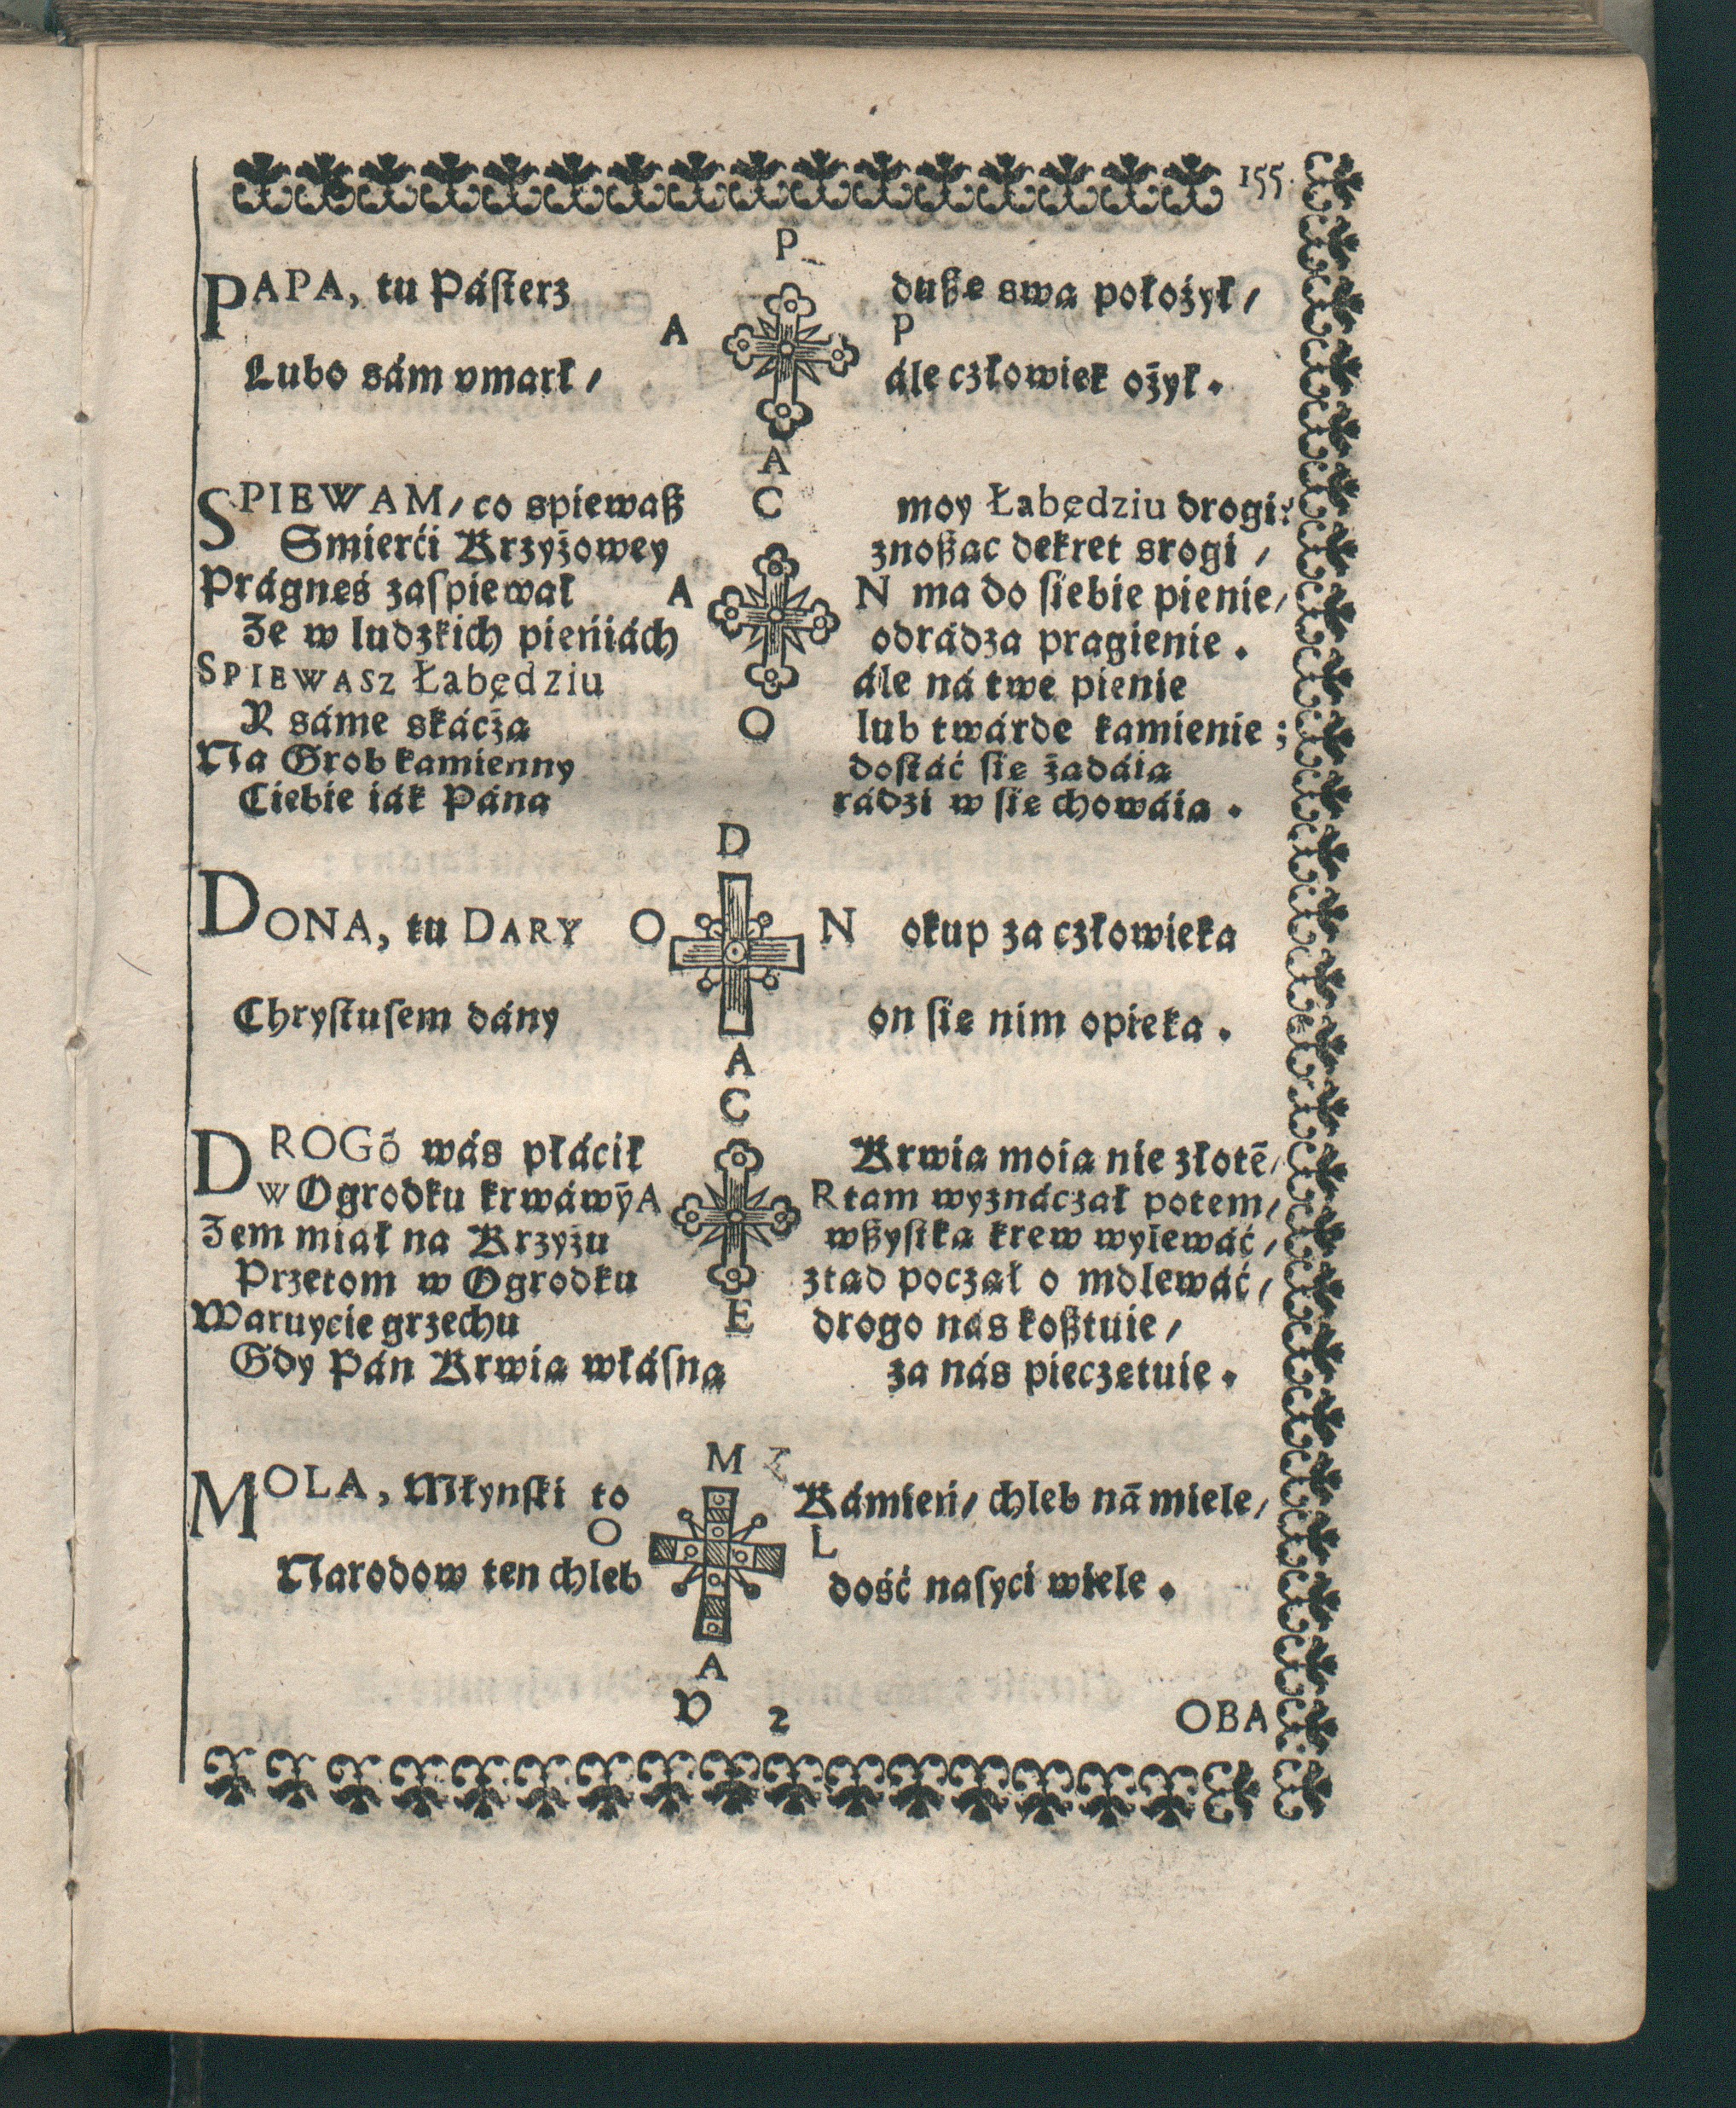 155.
P
PAPA, tu Pásterz duße swa położył /
A P
Lubo sám vmarł / ále człowiek ożył.
A
C
SPIEWAM / co spiewaß moy Łabędziu drogi:
Smierći Krzyżowey znoßac dekret srogi /
Prágneś zaſpiewał A N ma do ſiebie pienie /
Ze w ludzkich pieńiách odrádza pragienie.
SPIEWASz Łabędziu ále ná twe pienie
Y sáme skácża O lub twárde kamienie ;
Na Grob kamienny dostáć ſie żadáia
Ciebie iák Pána rádzi w ſie chowáia.
D
DONA, tu DARY O N okup za człowieka
Chryſtuſem dány on ſie nim opieka.
A
C
DROGŏ wás płácił Krwia moia nie złotē /
w Ogrodku krwáwȳ A R tam wyznáczał potem /
Zem miał na Krzyżu wßyſtka krew wylewáć /
Przetom w Ogrodku ztad poczał o mdlewáć /
Waruycie grzechu E drogo nás koßtuie /
Gdy Pán Krwia włáſna za nás pieczetuie.
M
MOLA, Młynſki to Kámień / chleb nā miele /
O L
Narodow ten chleb dość naſyci wiele.
A
V 2 OBA